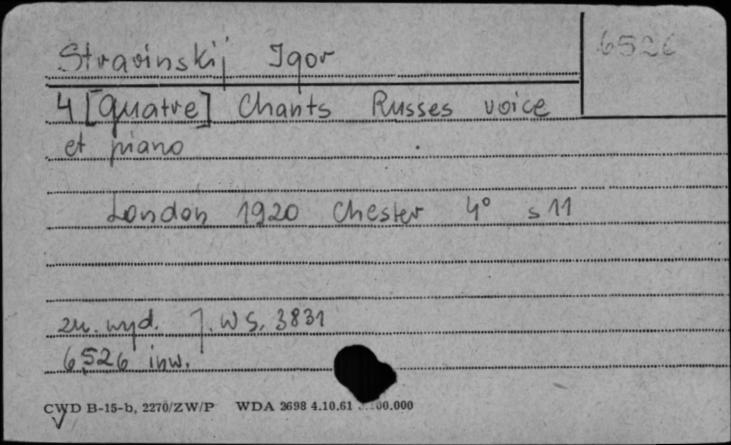 Stravinskij Igor
6526
4 [quatre] Chants Russes voice
et piano
London 1920 Chester 4° s 11
zn. wyd. J. W. S. 3831
6526 inw.
CWD B-15-b, 2270/ZW/P WDA 2698 4.10.61 00.000